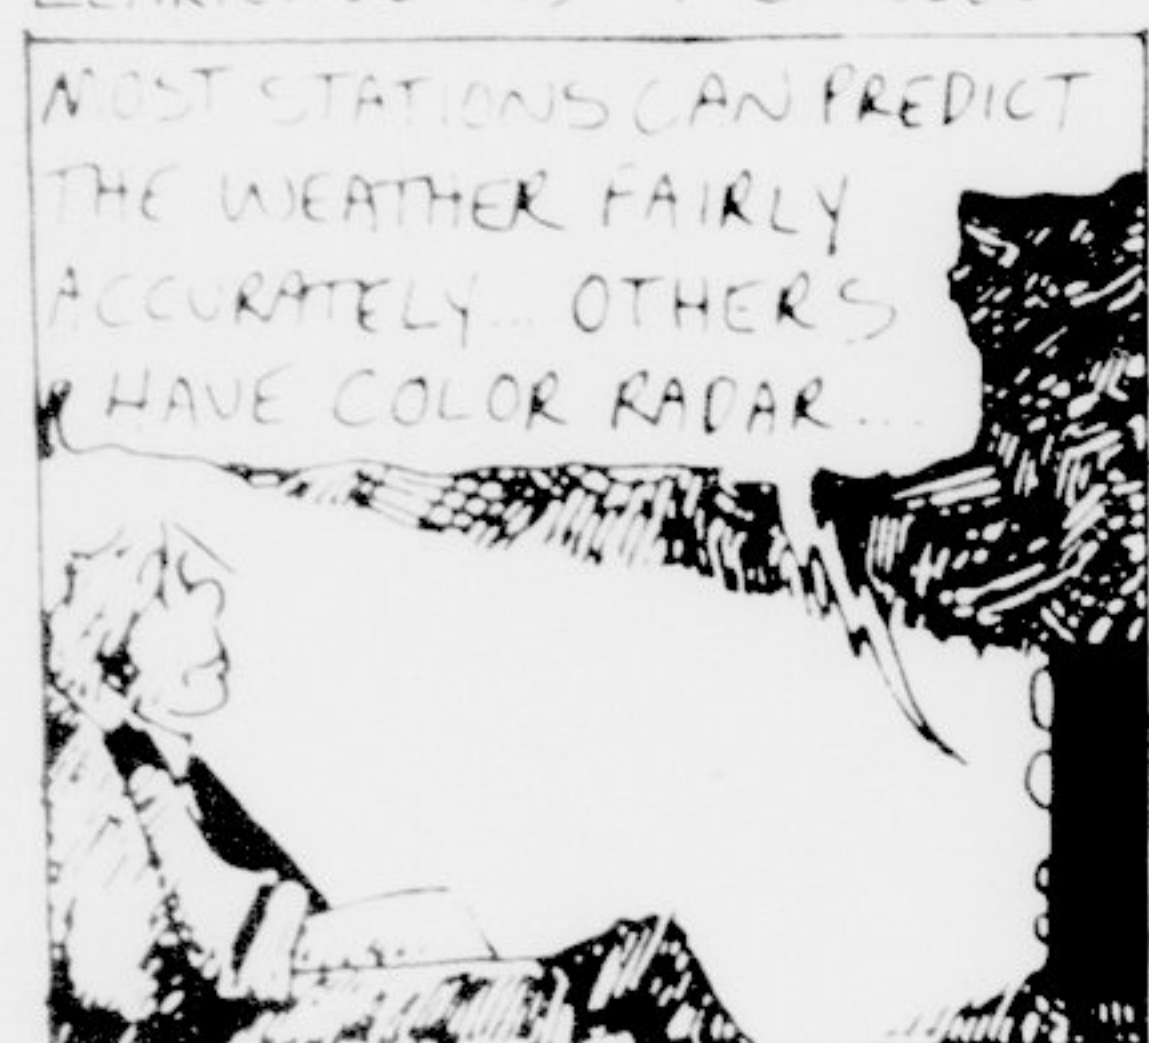 MOST STATIONS CAN PREDICT
THE WEATHER FAIRLY
ACCURATELY... OTHERS
HAVE COLOR RADAR....